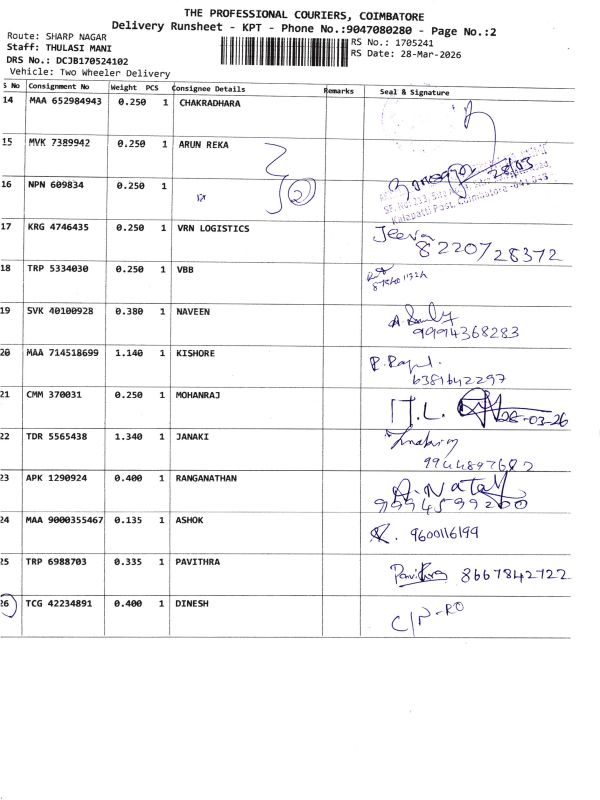 THE PROFESSIONAL COURIERS, COIMBATORE
Delivery Runsheet - KPT - Phone No.:9047080280 - Page No.:2
Route: SHARP NAGAR
Staff: THULASI MANI
DRS No.: DCJB170524102
Vehicle: Two Wheeler Delivery
RS No.: 1705241
RS Date: 28-Mar-2026
S No Consignment No Weight PCS Consignee Details Remarks Seal & Signature
14 MAA 652984943 0.250 1 CHAKRADHARA
15 MVK 7389942 0.250 1 ARUN REKA
28/03
16 NPN 609834 0.250 1 2
Kalapatti Post, Coimbatore
17 KRG 4746435 0.250 1 VRN LOGISTICS Jeeva
8220728372
18 TRP 5334030 0.250 1 VBB
19 SVK 40100928 0.380 1 NAVEEN
9994368283
20 MAA 714518699 1.140 1 KISHORE
6381642297
21 CMM 370031 0.250 1 MOHANRAJ 28-03-26
22 TDR 5565438 1.340 1 JANAKI
23 APK 1290924 0.400 1 RANGANATHAN A. Nataj
9994599200
24 MAA 9000355467 0.135 1 ASHOK 9600116199
25 TRP 6988703 0.335 1 PAVITHRA Pavithra 8667842722
26 TCG 42234891 0.400 1 DINESH C/N-RO